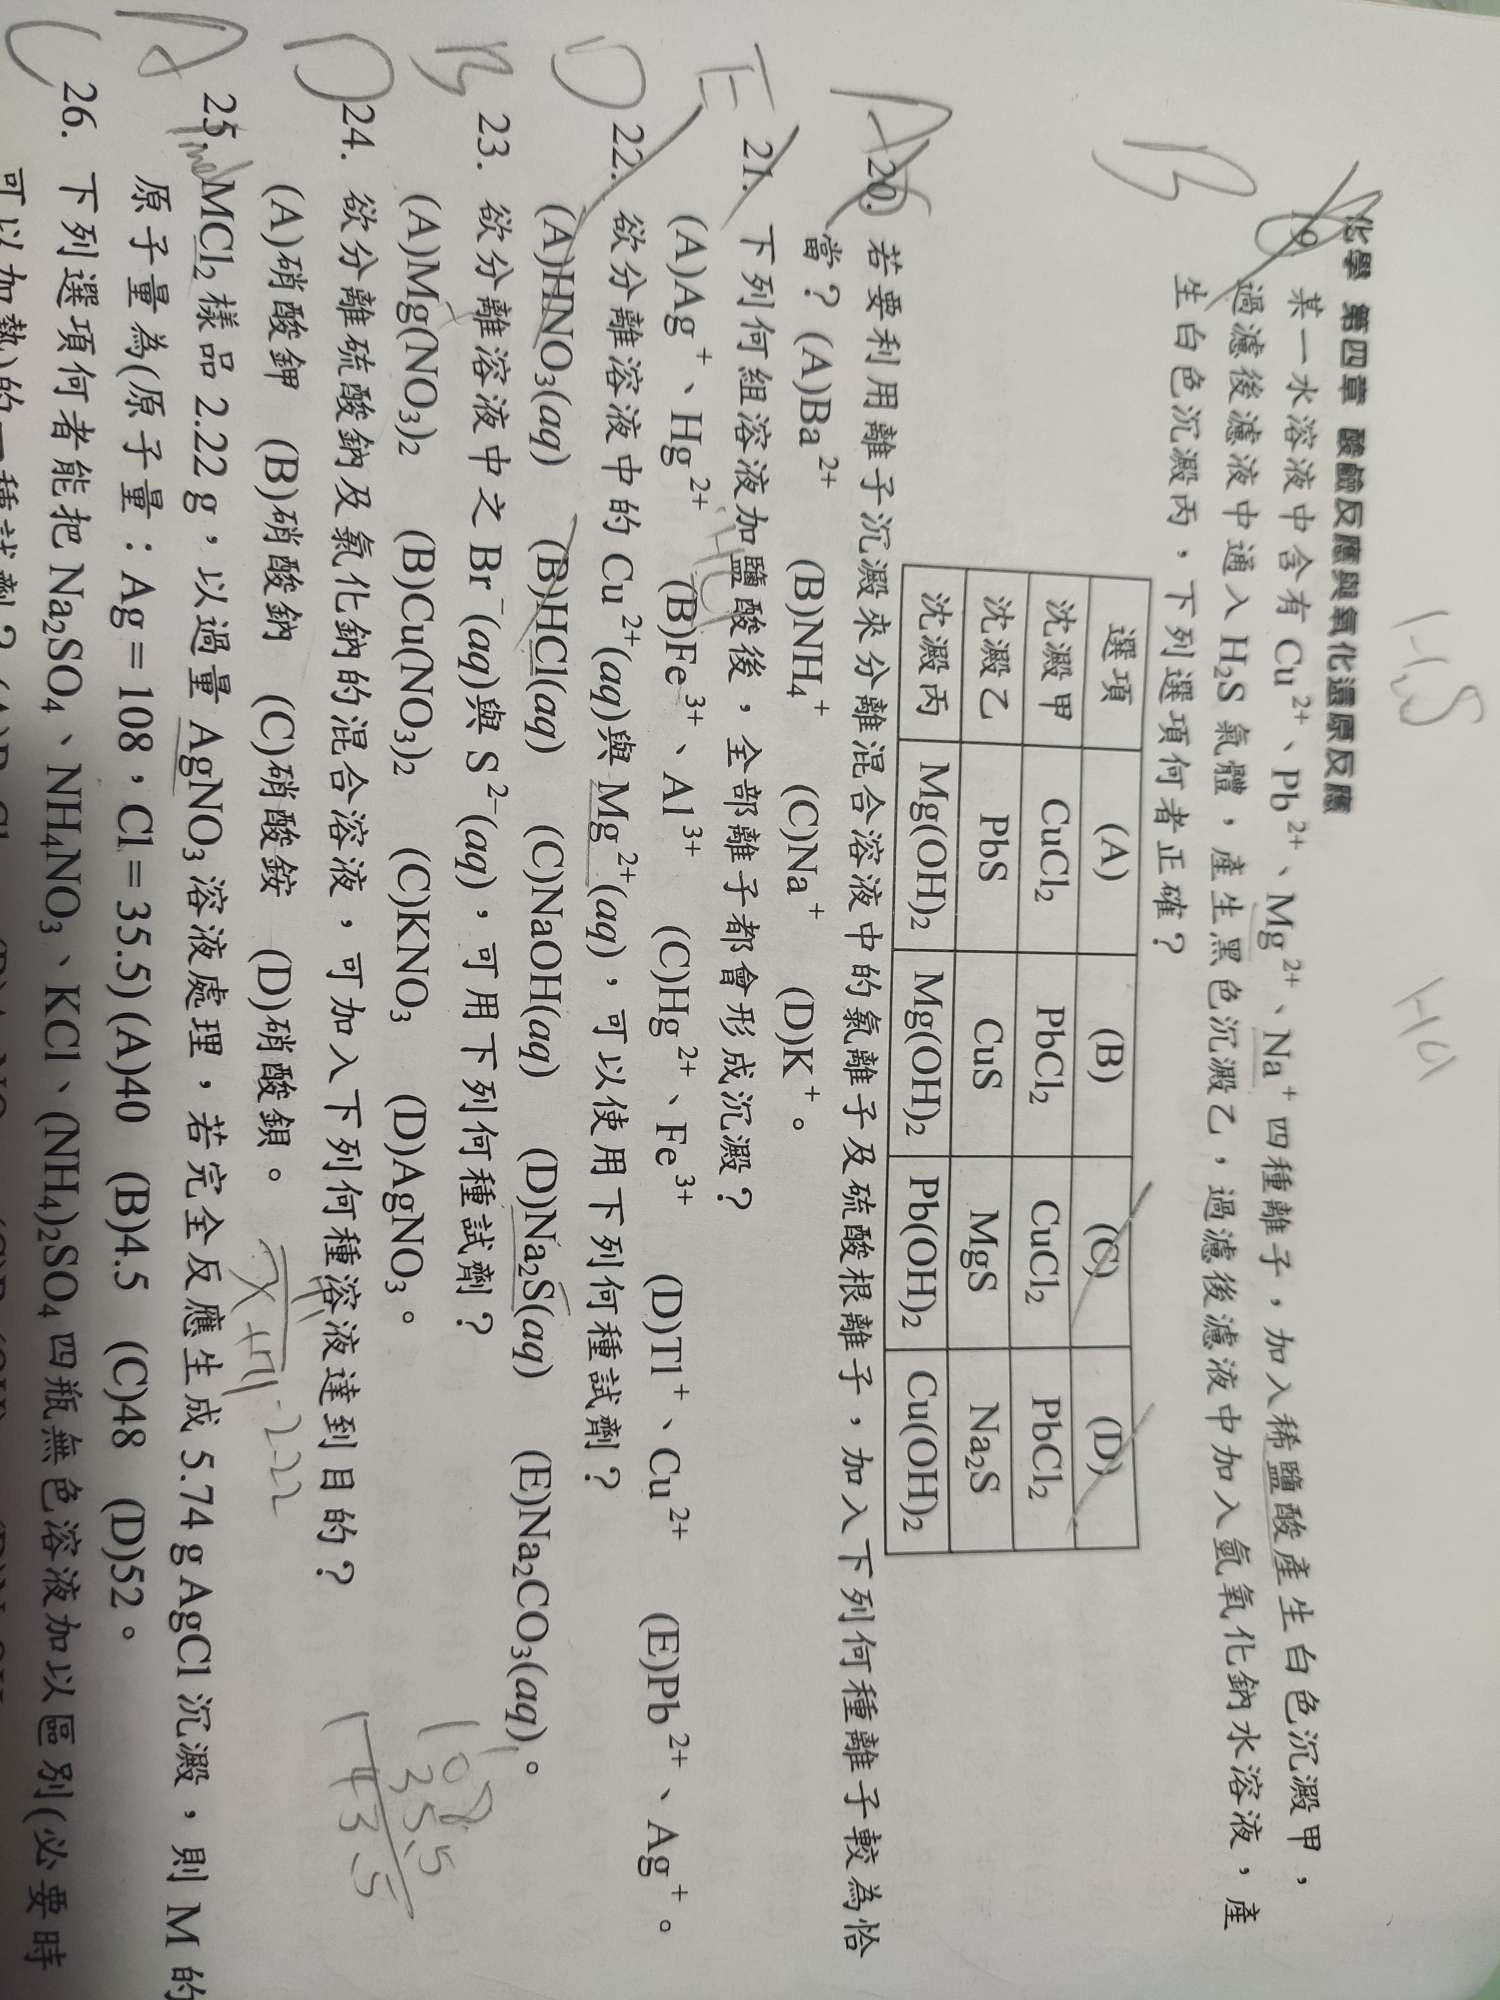 H₂S
化學 第四章 酸鹼反應與氧化還原反應
B
19. 某一水溶液中含有 Cu²⁺、Pb²⁺、Mg²⁺、Na⁺ 四種離子，加入稀鹽酸產生白色沉澱甲，
過濾後濾液中通入 H₂S 氣體，產生黑色沉澱乙，過濾後濾液中加入氫氧化鈉水溶液，產
生白色沉澱丙，下列選項何者正確？
選項 (A) (B) (C) (D)
沈澱甲 CuCl₂ PbCl₂ CuCl₂ PbCl₂
沈澱乙 PbS CuS MgS Na₂S
沈澱丙 Mg(OH)₂ Mg(OH)₂ Pb(OH)₂ Cu(OH)₂
A
20. 若要利用離子沉澱來分離混合溶液中的氯離子及硫酸根離子，加入下列何種離子較為恰
當？ (A)Ba²⁺ (B)NH₄⁺ (C)Na⁺ (D)K⁺。
E
21. 下列何組溶液加鹽酸後，全部離子都會形成沉澱？
(A)Ag⁺、Hg²⁺ (B)Fe³⁺、Al³⁺ (C)Hg²⁺、Fe³⁺ (D)Tl⁺、Cu²⁺ (E)Pb²⁺、Ag⁺。
D
22. 欲分離溶液中的 Cu²⁺(aq)與 Mg²⁺(aq)，可以使用下列何種試劑？
(A)HNO₃(aq) (B)HCl(aq) (C)NaOH(aq) (D)Na₂S(aq) (E)Na₂CO₃(aq)。
B
23. 欲分離溶液中之 Br⁻(aq)與 S²⁻(aq)，可用下列何種試劑？
(A)Mg(NO₃)₂ (B)Cu(NO₃)₂ (C)KNO₃ (D)AgNO₃。
108
35.5
143.5
D
24. 欲分離硫酸鈉及氯化鈉的混合溶液，可加入下列何種溶液達到目的？
(A)硝酸鉀 (B)硝酸鈉 (C)硝酸銨 (D)硝酸鋇。
A
25. MCl₂樣品 2.22 g，以過量 AgNO₃ 溶液處理，若完全反應生成 5.74 g AgCl 沉澱，則 M 的
原子量為(原子量：Ag＝108，Cl＝35.5) (A)40 (B)4.5 (C)48 (D)52。
C
26. 下列選項何者能把 Na₂SO₄、NH₄NO₃、KCl、(NH₄)₂SO₄ 四瓶無色溶液加以區別(必要時
可以加熱)的一種試劑？